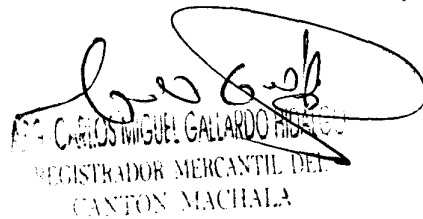 ABG. CARLOS MIGUEL GALLARDO HIDALGO
REGISTRADOR MERCANTIL DEL
CANTON MACHALA